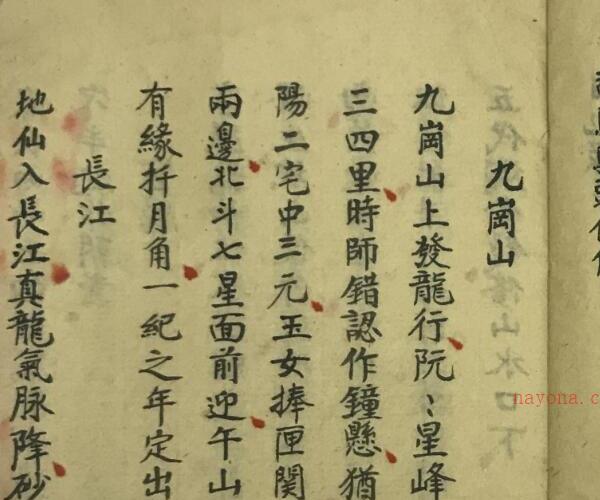 九崗山
九崗山上發龍行阮〻星峰
三四里時師錯認作鐘懸猶
陽二宅中三元玉女捧匣関
兩邊北斗七星面前迎午山
有緣扦月角一紀之年定出
長江
地仙入長江真龍氣脉降砂
nayona.c